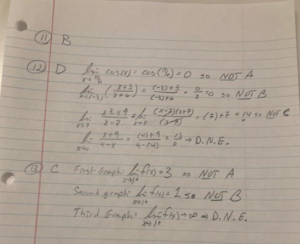 (11) B
(12) D lim x→π/2 cos(x) = cos(π/2) = 0 so NOT A
lim x→(-3) (x+3/x+4) = (-3)+3/(-3)+4 = 0 so NOT B
lim x→7 = lim x→7 (x-7)(x+7)/(x-7) = (7)+7 = 14 so NOT C
lim x→4 x+9/4-x = (4)+9/4-(4) = ⇒ D.N.E.
(13) C First Graph: lim f(x) = 3 so NOT A
Second graph: lim f(x) = 1 so NOT B
Third Graph: lim f(x) ⇒ D.N.E.